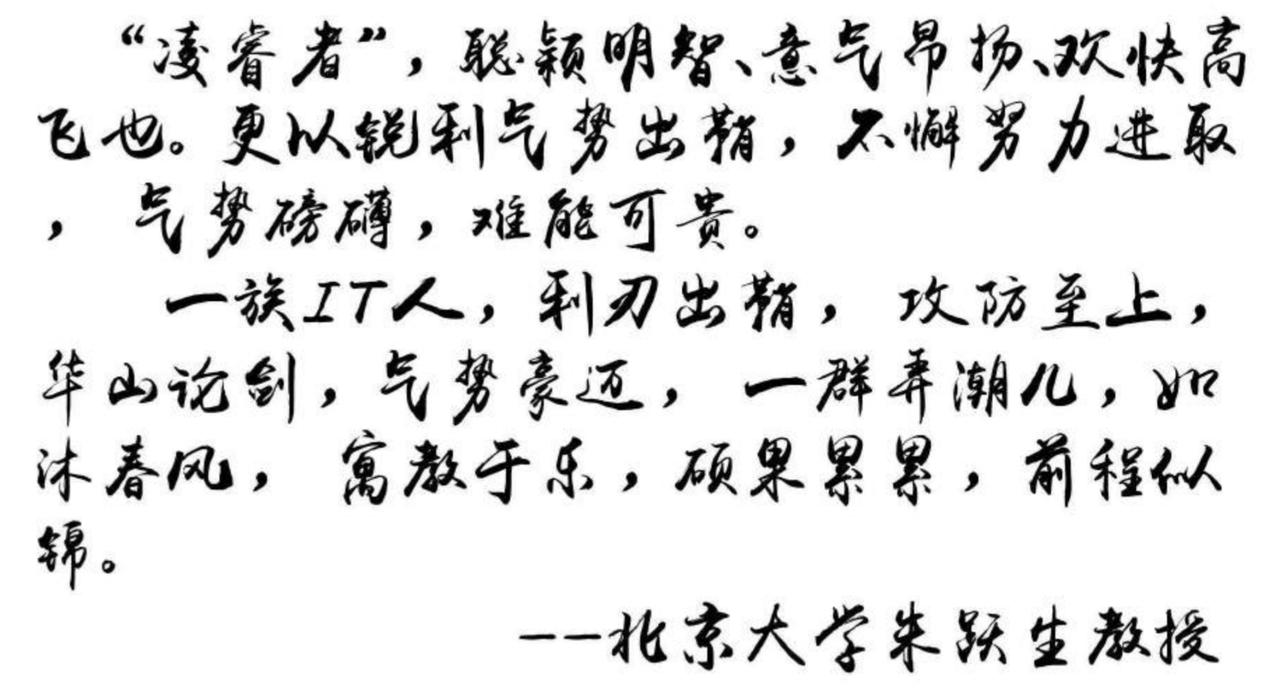 “凌睿者”，聪颖明智、意气昂扬、欢快高
飞也。更以锐利气势出鞘，不懈努力进取
，气势磅礴，难能可贵。
一族IT人，利刃出鞘，攻防至上，
华山论剑，气势豪迈，一群弄潮儿，如
沐春风，寓教于乐，硕果累累，前程似
锦。
--北京大学朱跃生教授